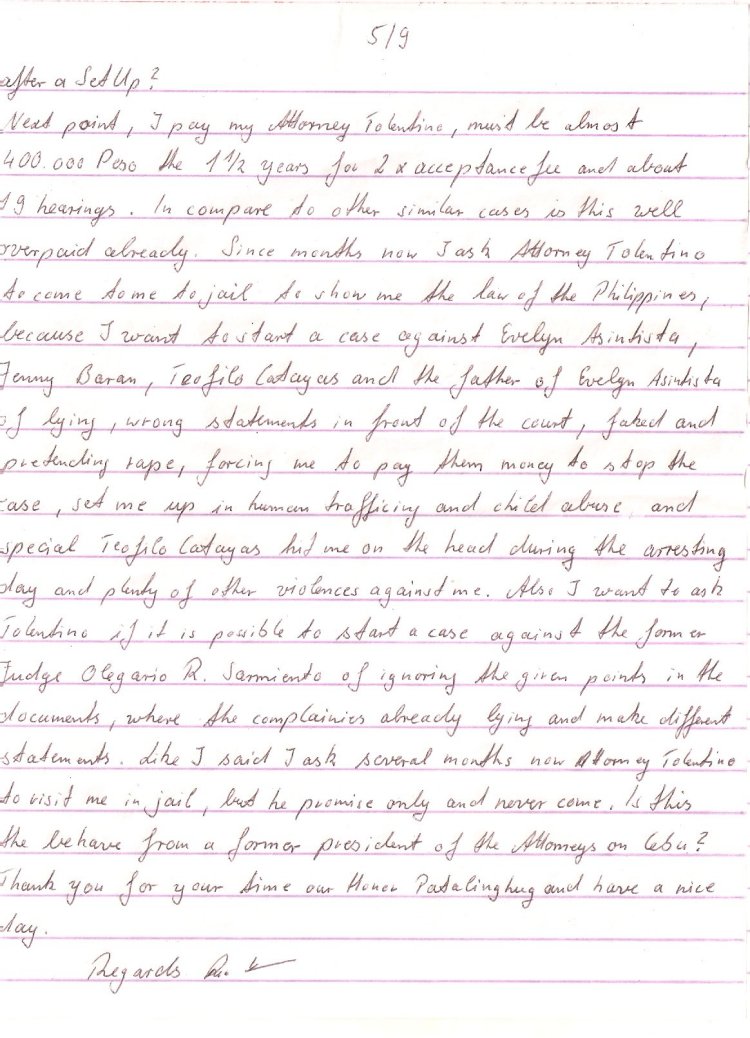 5/9
after a Set Up?
Next point, I pay my Attorney Tolentino, must be almost
400.000 Peso the 1 1/2 years for 2 x acceptance fee and about
19 hearings. In compare to other similar cases is this well
overpaid already. Since months now I ask Attorney Tolentino
to come to me to jail to show me the law of the Philippines,
because I want to start a case against Evelyn Asintista,
Jenny Baran, Teofilo Catayas and the father of Evelyn Asintista
of lying, wrong statements in front of the court, faked and
pretending rape, forcing me to pay them money to stop the
case, set me up in human trafficing and child abuse and
special Teofilo Catayas hit me on the head during the arresting
day and plenty of other violences against me. Also I want to ask
Tolentino if it is possible to start a case against the former
Judge Olegario R. Sarmiento of ignoring the given points in the
documents, where the complainies already lying and make different
statements. Like I said I ask several months now Attorney Tolentino
to visit me in jail, but he promise only and never come. Is this
the behave from a former president of the Attorneys on Cebu?
Thank you for your time our Honor Patalinghug and have a nice
day.
Regards